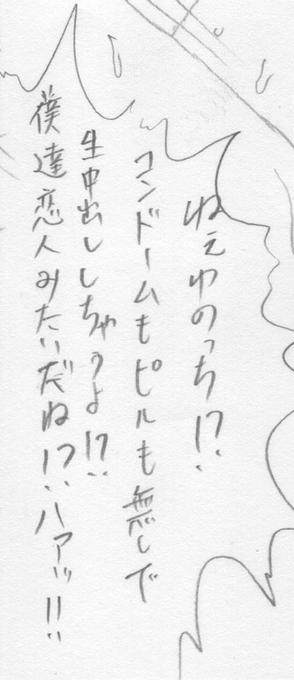 ねぇゆのっち!?
コンドームもピルも無しで
生中出ししちゃうよ!?
僕達恋人みたいだね!?ハァッ!!